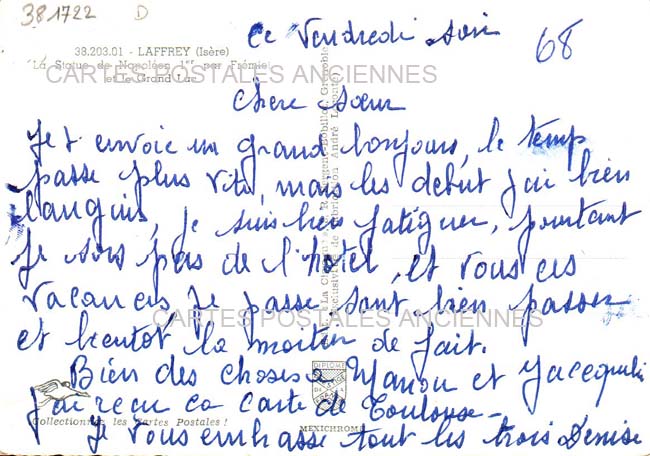 381722 D
38.203.01 - LAFFREY (Isère)
La Statue de Napoléon 1er par Frémiet
et le Grand Lac
CARTES POSTALES ANCIENNES
ce Vendredi soir
68
Chère soeur
Je t envoie un grand bonjour, le temp
passe plus vite, mais les debut j'ai bien
languis, je suis bien fatiguer, pourtant
je sors pas de l'hotel, et vous ces
vacances je passe sont bien passer
CARTES POSTALES ANCIENNES
et bientot la moitier de fait.
Bien des choses a Manou et Jacqueline
j'ai recu ca carte de Toulouse -
Collectionnez les Cartes Postales !
MEXICHROME
Je vous embrasse tout les trois Denise